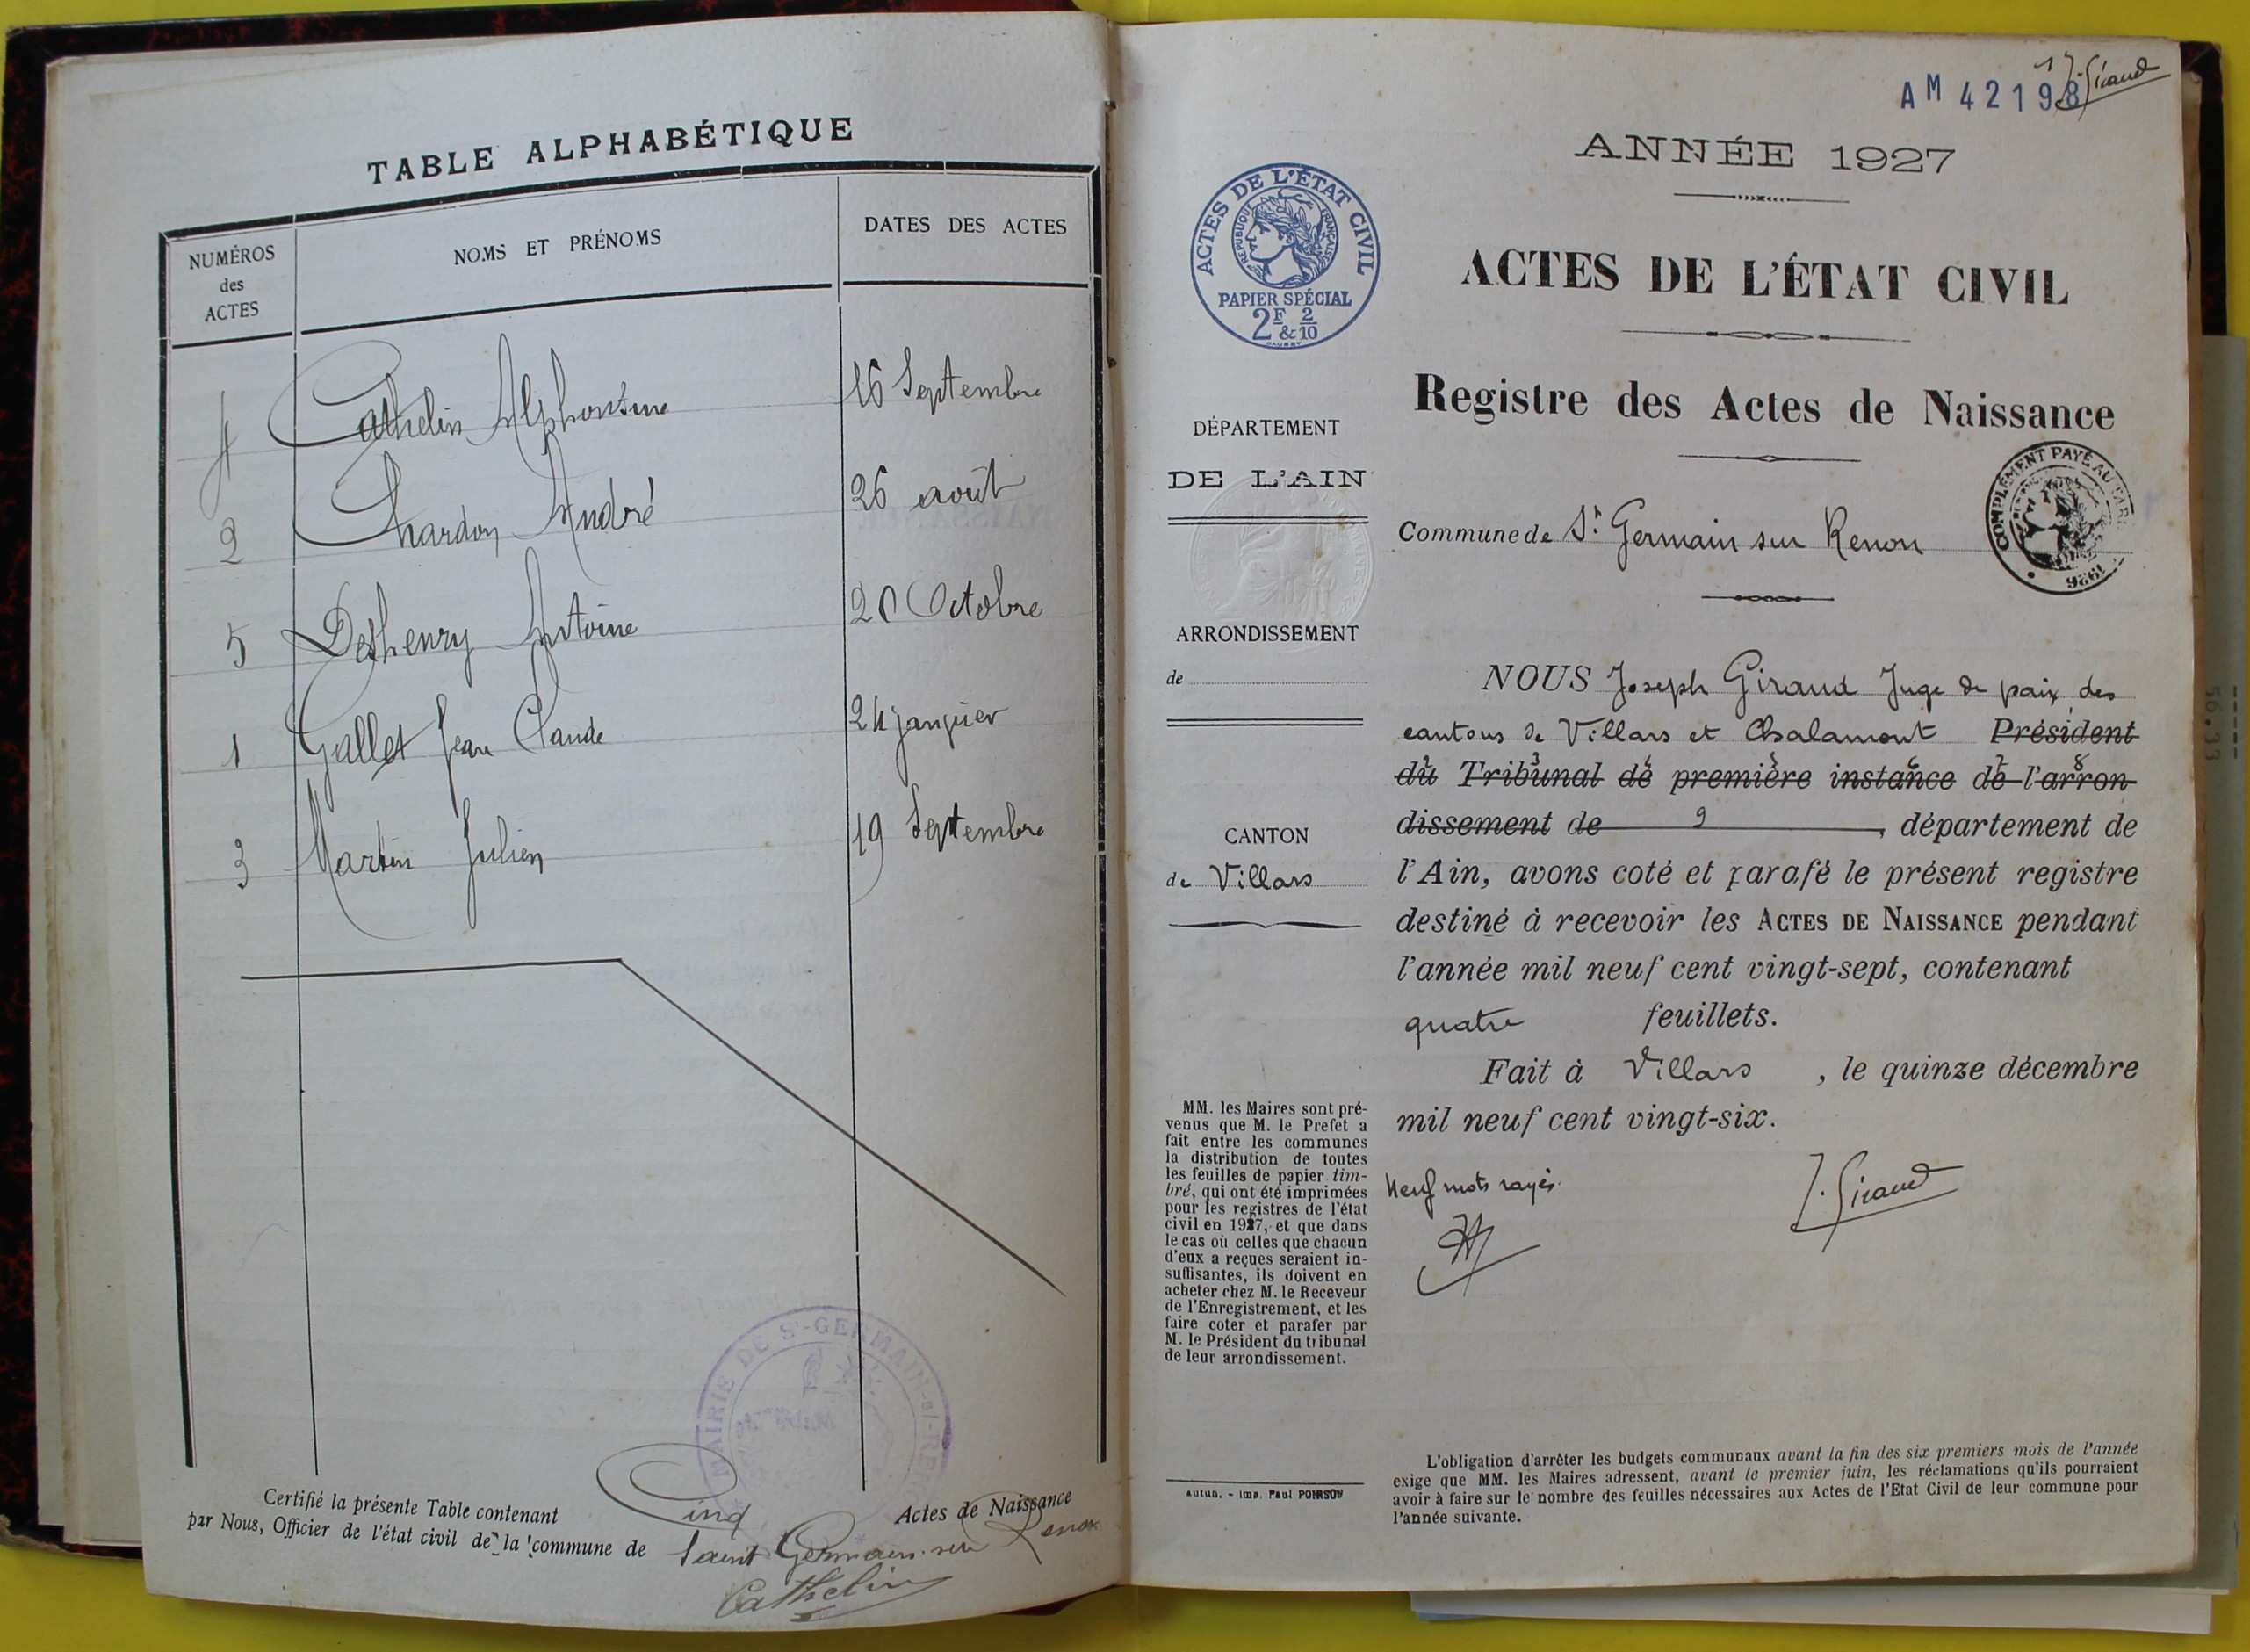 TABLE ALPHABÉTIQUE
NUMÉROS
des
ACTES
NOMS ET PRÉNOMS
DATES DES ACTES
4 Cathelin Alphonsine 16 Septembre
2 Chardon André 26 août
5 Deshenry Antoine 20 Octobre
1 Gallet Jean Claude 24 janvier
3 Martin Julien 19 Septembre
MAIRIE DE St-GERMAIN-s/-RE
Certifié la présente Table contenant Cinq Actes de Naissance
par Nous, Officier de l'état civil de la commune de Saint Germain sur Renon
Cathelin
1 J. Giraud
AM 42198
ANNÉE 1927
ACTES DE L'ÉTAT CIVIL
RÉPUBLIQUE FRANÇAISE
PAPIER SPÉCIAL
2F & 2/10
ACTES DE L'ÉTAT CIVIL
Registre des Actes de Naissance
COMPLÉMENT PAYÉ AU
1926
Commune de St Germain sur Renon
DÉPARTEMENT
DE L'AIN
ARRONDISSEMENT
de
CANTON
de Villars
NOUS Joseph Giraud Juge de paix des
cantons de Villars et Chalamont Président
du Tribunal de première instance de l'arron
dissement de 9 , département de
l'Ain, avons coté et parafé le présent registre
destiné à recevoir les ACTES DE NAISSANCE pendant
l'année mil neuf cent vingt-sept, contenant
quatre feuillets.
Fait à Villars , le quinze décembre
mil neuf cent vingt-six.
Neuf mots rayés.
J. Giraud
MM. les Maires sont pré-
venus que M. le Prefet a
fait entre les communes
la distribution de toutes
les feuilles de papier tim-
bré, qui ont été imprimées
pour les registres de l'état
civil en 1927, et que dans
le cas où celles que chacun
d'eux a reçues seraient in-
suffisantes, ils doivent en
acheter chez M. le Receveur
de l'Enregistrement, et les
faire coter et parafer par
M. le Président du tribunal
de leur arrondissement.
Autun. - Imp. Paul POIRSON
L'obligation d'arrêter les budgets communaux avant la fin des six premiers mois de l'année
exige que MM. les Maires adressent, avant le premier juin, les réclamations qu'ils pourraient
avoir à faire sur le nombre des feuilles nécessaires aux Actes de l'Etat Civil de leur commune pour
l'année suivante.